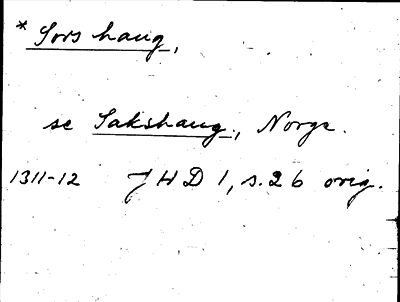 * Sors haug,
se Sakshaug, Norge.
1311-12 JHD 1, s. 26 orig.